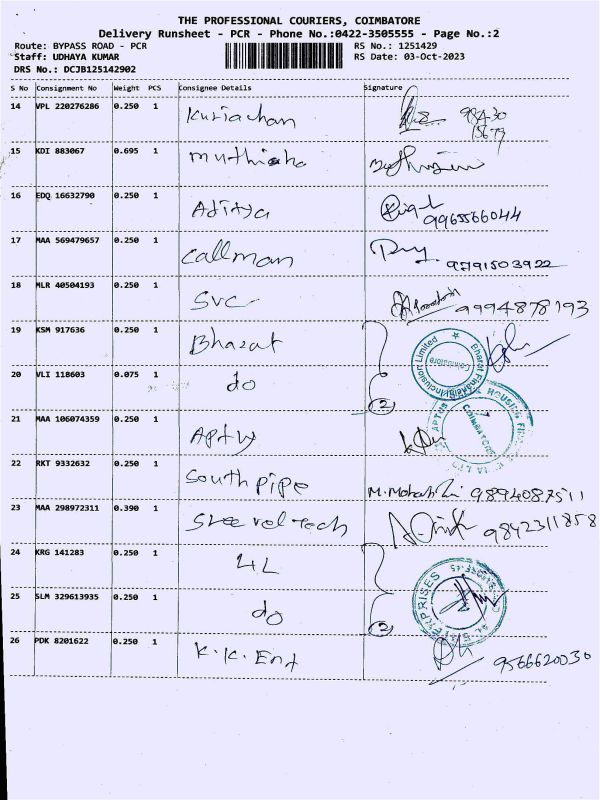 THE PROFESSIONAL COURIERS, COIMBATORE
Delivery Runsheet - PCR - Phone No.:0422-3505555 - Page No.:2
Route: BYPASS ROAD - PCR RS No.: 1251429
Staff: UDHAYA KUMAR RS Date: 03-Oct-2023
DRS No.: DCJB125142902
S No Consignment No Weight PCS Consignee Details Signature
14 VPL 220276286 0.250 1 Kuriachan 98430
15679
15 KDI 883067 0.695 1 muthiaha
16 EDQ 16632790 0.250 1 Aditya 9965566044
17 MAA 569479657 0.250 1 Callman 9791503922
18 MLR 40504193 0.250 1 SVC 9994878193
19 KSM 917636 0.250 1 Bharat
Bharat Financial Inclusion Limited Coimbatore
20 VLI 118603 0.075 1 do 2
21 MAA 106074359 0.250 1 Aptus
APTUS HOUSING COIMBATORE
22 RKT 9332632 0.250 1 South pipe 9894087511
23 MAA 298972311 0.390 1 Steevel Tech 9842311858
24 KRG 141283 0.250 1 4L
25 SLM 329613935 0.250 1 do 2
ENTERPRISES
26 PDK 8201622 0.250 1 K.K. Ent 9566620030